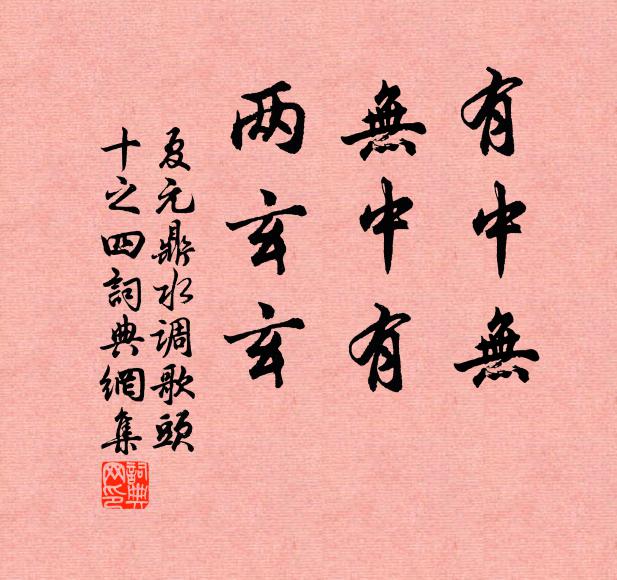 有中無
無中有
两玄玄
夏元鼎水调歌頭
十之四詞典網集
詞典网印